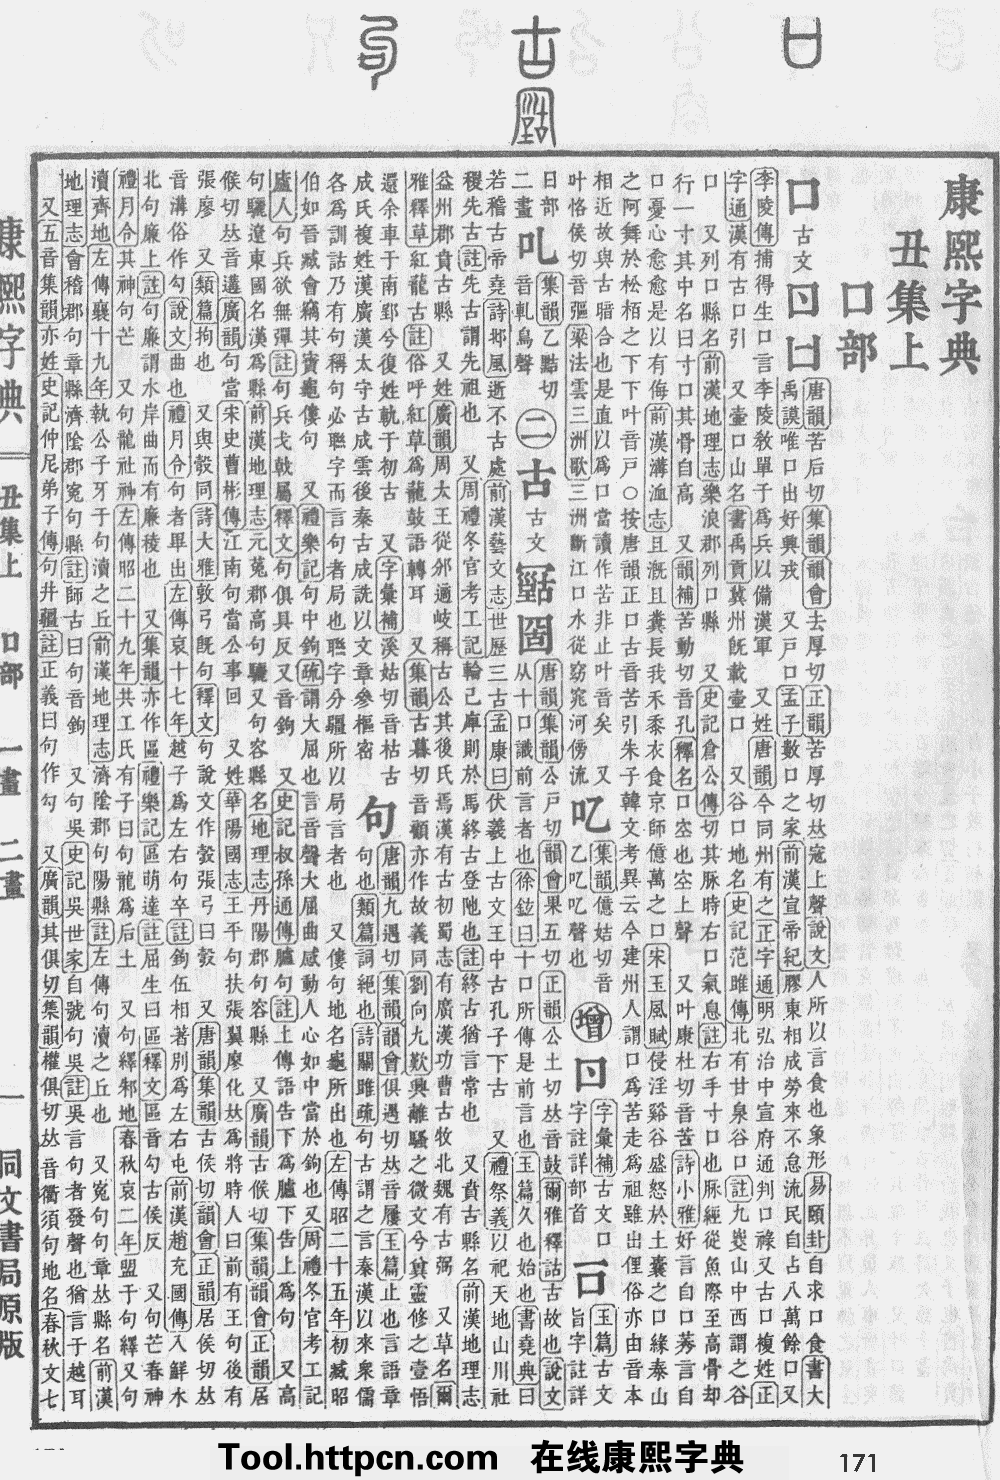 康熙字典
丑集上
口部
口古文囗㠯
唐韻苦后切集韻韻會去厚切正韻苦厚切𠀤寇上聲說文人所以言食也象形易頤卦自求口食書大
禹謨唯口出好興戎 又戸口孟子數口之家前漢宣帝紀膠東相成勞來不怠流民自占八萬餘口又
李陵傳捕得生口言李陵敎單于爲兵以備漢軍 又姓唐韻今同州有之正字通明弘治中宣府通判口祿又古口複姓正
字通漢有古口引 又壷口山名書禹貢冀州旣載壷口 又谷口地名史記范雎傳北有甘泉谷口註九嵏山中西謂之谷
口 又列口縣名前漢地理志樂浪郡列口縣 又史記倉公傳切其脈時右口氣急註右手寸口也脈經從魚際至高骨却
行一寸其中名曰寸口其骨自高 又韻補苦動切音孔釋名口空也空上聲 又叶康杜切音苦詩小雅好言自口莠言自
口憂心愈愈是以有侮前漢溝洫志且漑且糞長我禾黍衣食京師億萬之口宋玉風賦侵淫谿谷盛怒於土囊之口緣泰山
之阿舞於松栢之下下叶音戸○按唐韻正口古音苦引朱子韓文考異云今建州人謂口爲苦走爲祖雖出俚俗亦由音本
相近故與古暗合也是直以爲口當讀作苦非止叶音矣 又
叶恪侯切音彄梁法雲三洲歌三洲斷江口水從窈窕河傍流
集韻億姞切音
乙吃吃聲也
增
字彙補古文口
字註詳部首
玉篇古文
旨字註詳
日部
二畫
集韻乙黠切
音軋鳥聲
二
古古文
唐韻集韻公戸切韻會果五切正韻公土切𠀤音鼓爾雅釋詁古故也說文
从十口識前言者也徐鉉曰十口所傳是前言也玉篇久也始也書堯典曰
若稽古帝堯詩邶風逝不古處前漢藝文志世歷三古孟康曰伏羲上古文王中古孔子下古 又禮祭義以祀天地山川社
稷先古註先古謂先祖也 又周禮冬官考工記輪已庳則於馬終古登阤也註終古猶言常也 又賁古縣名前漢地理志
益州郡賁古縣 又姓廣韻周太王從邠適岐稱古公其後氏焉漢有古初蜀志有廣漢功曹古牧北魏有古弼 又草名爾
雅釋草紅龍古註俗呼紅草爲龍鼓語轉耳 又集韻古暮切音顧亦作故義同劉向九歎興離騷之微文兮冀靈修之壹悟
還余車于南郢兮復姓軌于初古 又字彙補溪姑切音枯古
成氏複姓漢廣漢太守古成雲後秦古成詵以文章參樞密
句
唐韻九遇切集韻韻會俱遇切𠀤音屨玉篇止也言語章
句也類篇詞絕也詩關雎疏句古謂之言秦漢以來衆儒
各爲訓詁乃有句稱句必聯字而言句者局也聯字分疆所以局言者也 又僂句地名龜所出也左傳昭二十五年初臧昭
伯如晉臧會竊其寶龜僂句 又禮樂記句中鉤疏謂大屈也言音聲大屈曲感動人心如中當於鉤也又周禮冬官考工記
廬人句兵欲無彈註句兵戈戟屬釋文句俱具反又音鉤 又史記叔孫通傳臚句註上傳語告下爲臚下告上爲句 又高
句驪遼東國名漢爲縣前漢地理志元菟郡高句驪又句容縣名地理志丹陽郡句容縣 又廣韻古候切集韻韻會正韻居
候切𠀤音遘廣韻句當宋史曹彬傳江南句當公事回 又姓華陽國志王平句扶張翼廖化𠀤爲將時人曰前有王句後有
張廖 又類篇拘也 又與彀同詩大雅敦弓旣句釋文句說文作彀張弓曰彀 又唐韻集韻古侯切韻會正韻居侯切𠀤
音溝俗作勾說文曲也禮月令句者畢出左傳哀十七年越子爲左右句卒註鉤伍相著別爲左右屯前漢趙充國傳入鮮水
北句廉上註句廉謂水岸曲而有廉稜也 又集韻亦作區禮樂記區萌達註屈生曰區釋文區音勾古侯反 又句芒春神
禮月令其神句芒 又句龍社神左傳昭二十九年共工氏有子曰句龍爲后土 又句繹邾地春秋哀二年盟于句繹又句
瀆齊地左傳襄十九年執公子牙于句瀆之丘前漢地理志濟陰郡句陽縣註左傳句瀆之丘也 又寃句句章𠀤縣名前漢
地理志會稽郡句章縣濟陰郡寃句縣註師古曰句音鉤 又句吳史記吳世家自號句吳註吳言句者發聲也猶言于越耳
又五音集韻亦姓史記仲尼弟子傳句井疆註正義曰句作勾 又廣韻其俱切集韻權俱切𠀤音衢須句地名春秋文七
康熙字典 丑集上 口部 一畫 二畫 一 同文書局原版
Tool.httpcn.com 在线康熙字典 171